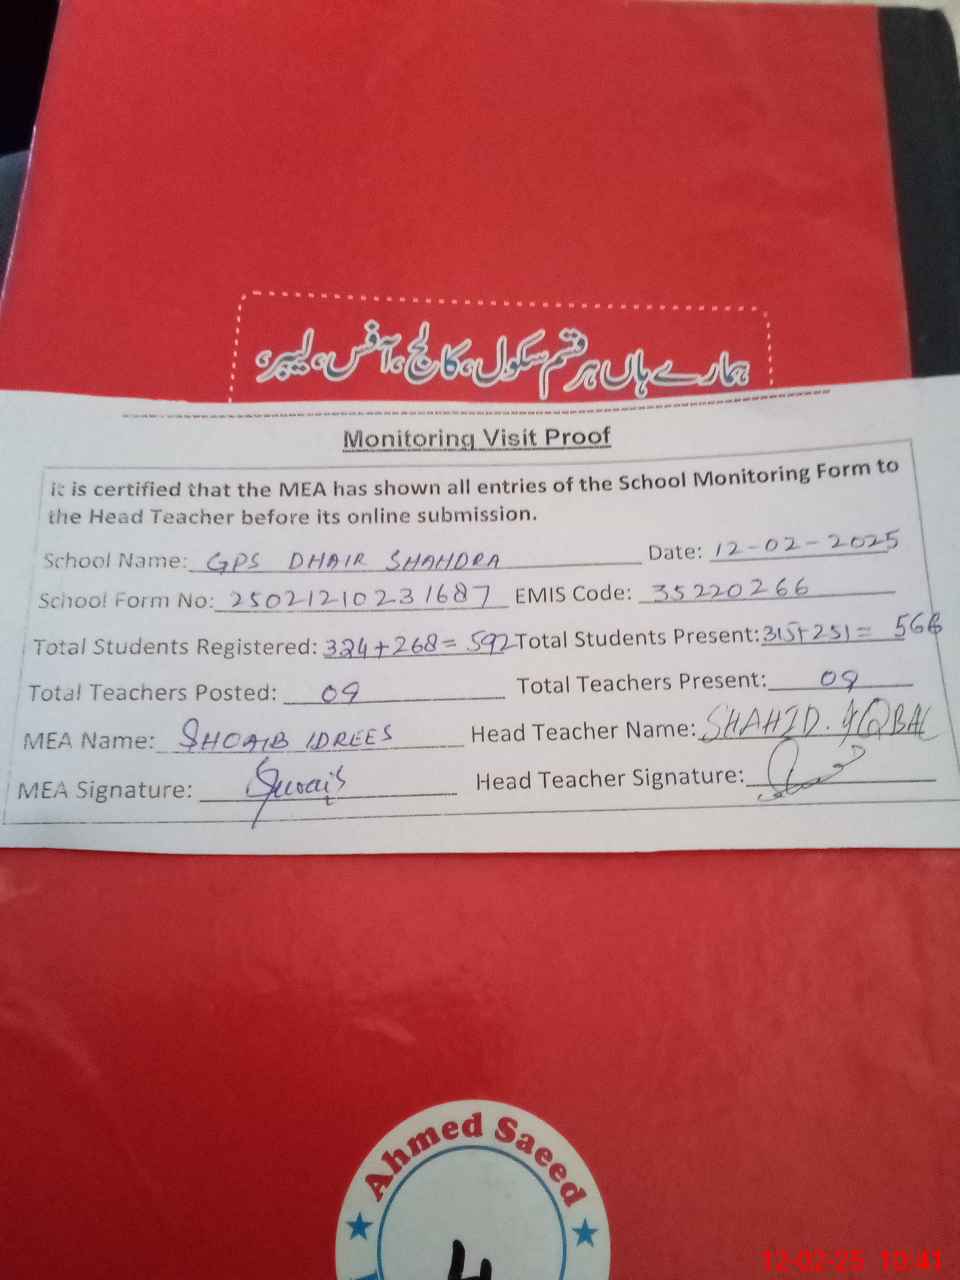 ہمارے ہاں ہر قسم سکول، کالج، آفس، لیبر،
Monitoring Visit Proof
It is certified that the MEA has shown all entries of the School Monitoring Form to
the Head Teacher before its online submission.
School Name: GPS DHAIR SHAHDRA Date: 12-02-2025
School Form No: 25021210231687 EMIS Code: 35220266
Total Students Registered: 324+268= 592 Total Students Present: 315+251= 566
Total Teachers Posted: 09 Total Teachers Present: 09
MEA Name: SHOAIB IDREES Head Teacher Name: SHAHID. IQBAL
MEA Signature: Head Teacher Signature:
Ahmed Saeed
4
12-02-25 10:41